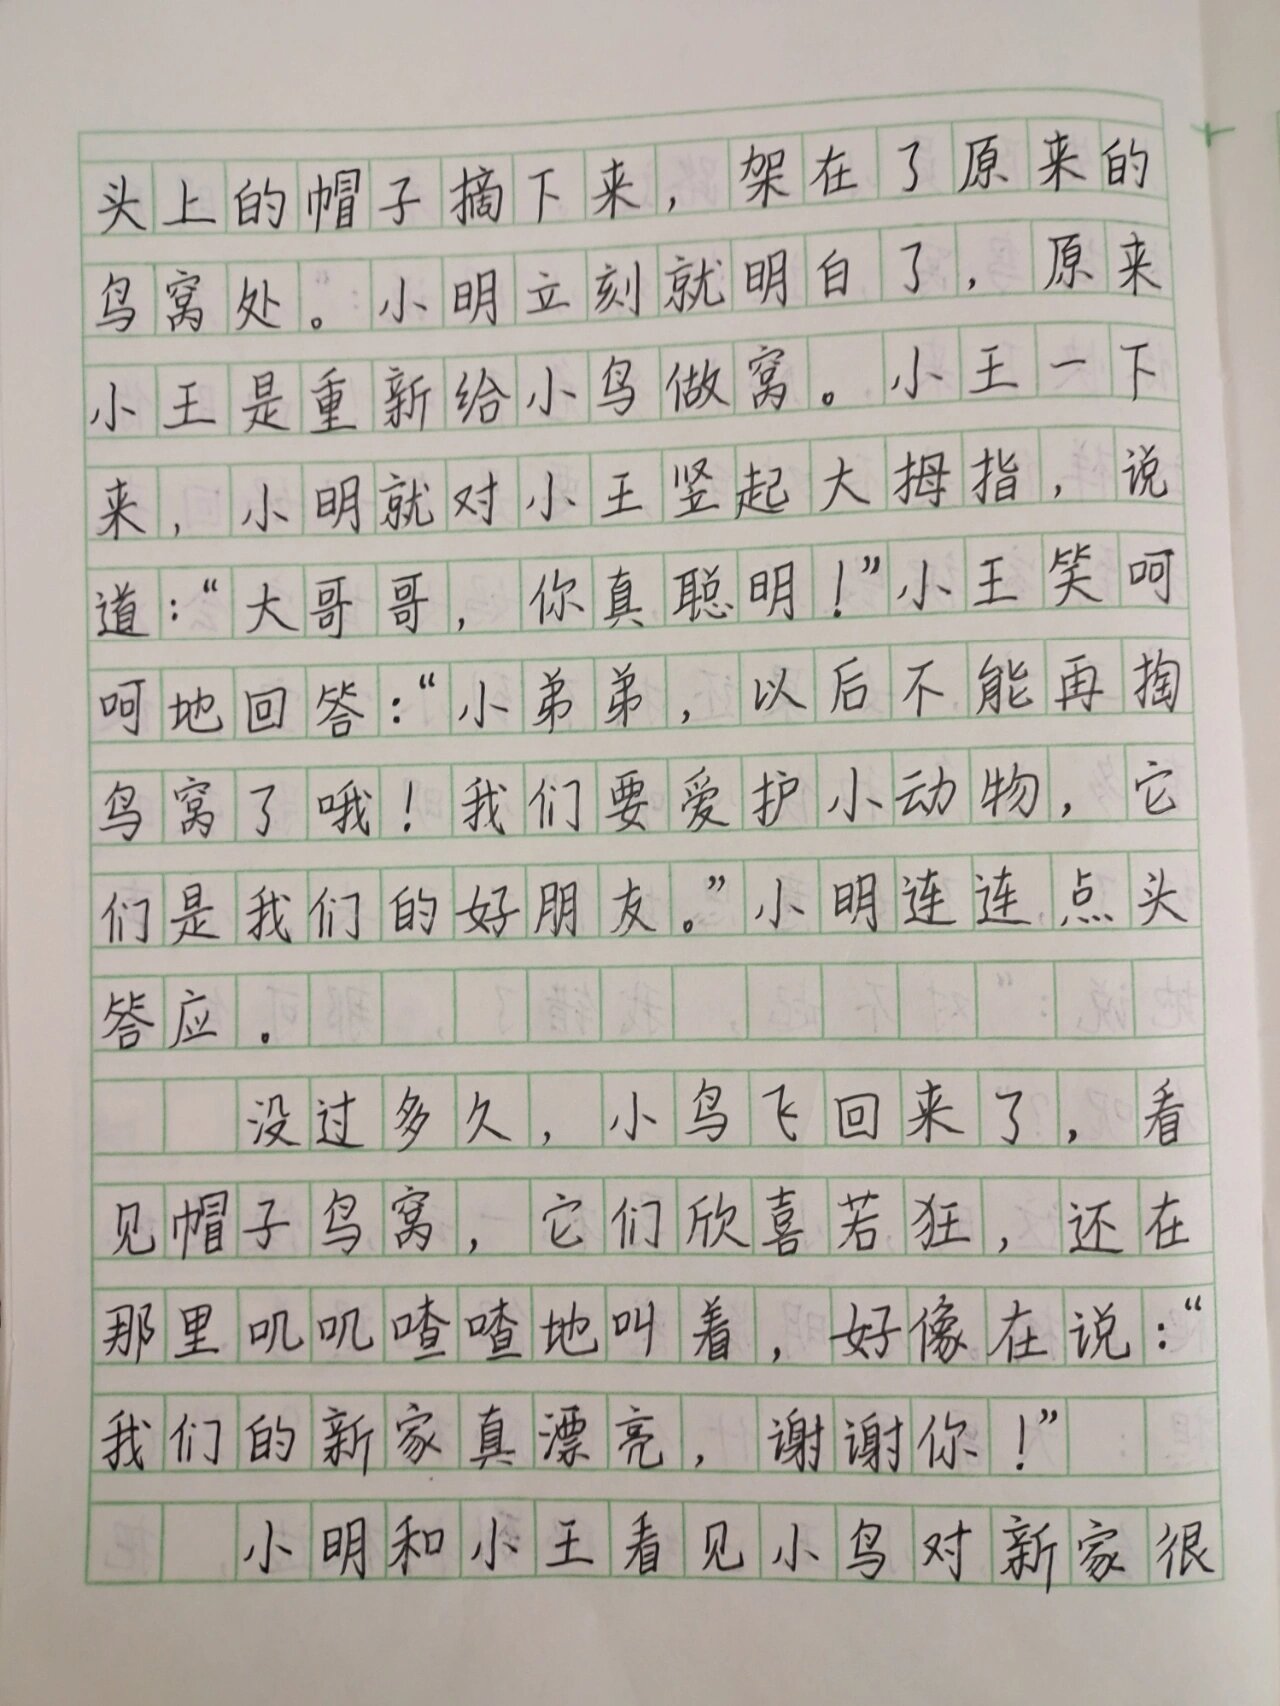 头上的帽子摘下来，架在了原来的
鸟窝处。小明立刻就明白了，原来
小王是重新给小鸟做窝。小王一下
来，小明就对小王竖起大拇指，说
道：“大哥哥，你真聪明！”小王笑呵
呵地回答：“小弟弟，以后不能再掏
鸟窝了哦！我们要爱护小动物，它
们是我们的好朋友。”小明连连点头
答应。
没过多久，小鸟飞回来了，看
见帽子鸟窝，它们欣喜若狂，还在
那里叽叽喳喳地叫着，好像在说：“
我们的新家真漂亮，谢谢你！”
小明和小王看见小鸟对新家很